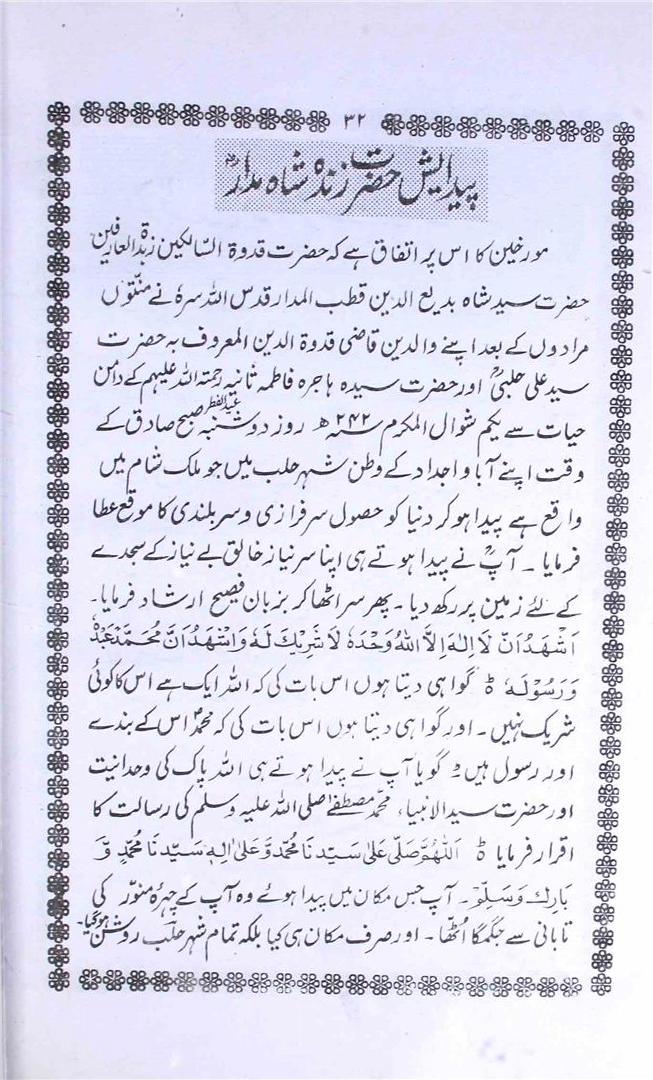 ۳۲
پیدایش حضرت زندہ شاہ مدارؒ
مورخین کا اس پر اتفاق ہے کہ حضرت قدوۃ السّالکین زبدۃ العارفین
حضرت سید شاہ بدیع الدین قطب المدار قدس اللہ سرہٗ نے منتوں
مرادوں کے بعد اپنے والدین قاضی قدوۃ الدین المعروف بہ حضرت
سید علی حلبیؒ اور حضرت سیدہ ہاجرہ فاطمہ ثانیہ رحمتہ اللہ علیہم کے دامن
حیات سے یکم شوال المکرم ۲۴۲ھ روز دوشنبہ عید الفطر صبح صادق کے
وقت اپنے آبا و اجداد کے وطن شہر حلب میں جو ملک شام میں
واقع ہے پیدا ہو کر دنیا کو حصول سرفرازی و سربلندی کا موقع عطا
فرمایا ۔ آپؒ نے پیدا ہوتے ہی اپنا سر نیاز خالق بے نیاز کے سجدے
کے لئے زمین پر رکھ دیا ۔ پھر سر اٹھا کر بزبان فصیح ارشاد فرمایا۔
اَشْهَدُ اَنْ لَا اِلٰهَ اِلَّا اللهُ وَحْدَهٗ لَا شَرِيْكَ لَهٗ وَاَشْهَدُ اَنَّ مُحَمَّدًا عَبْدُهٗ
وَرَسُوْلُهٗ ہ گواہی دیتا ہوں اس بات کی کہ اللہ ایک ہے اس کا کوئی
شریک نہیں ۔ اور گواہی دیتا ہوں اس بات کی کہ محمدؐ اس کے بندے
اور رسول ہیں ہ گویا آپ نے پیدا ہوتے ہی اللہ پاک کی وحدانیت
اور حضرت سید الانبیاء محمد مصطفےٰ صلی اللہ علیہ وسلم کی رسالت کا
اقرار فرمایا ہ اَللّٰهُمَّ صَلِّى عَلٰى سَيِّدِنَا مُحَمَّدٍ وَّعَلٰى اٰلِهٖ سَيِّدِنَا مُحَمَّدٍ وَّ
بَارِكْ وَسَلِّمْ۔ آپ جس مکان میں پیدا ہوئے وہ آپ کے چہرۂ منوّر کی
تابانی سے جگمگا اُٹھا ۔ اور صرف مکان ہی کیا بلکہ تمام شہر حلب روشن ہوگیا۔